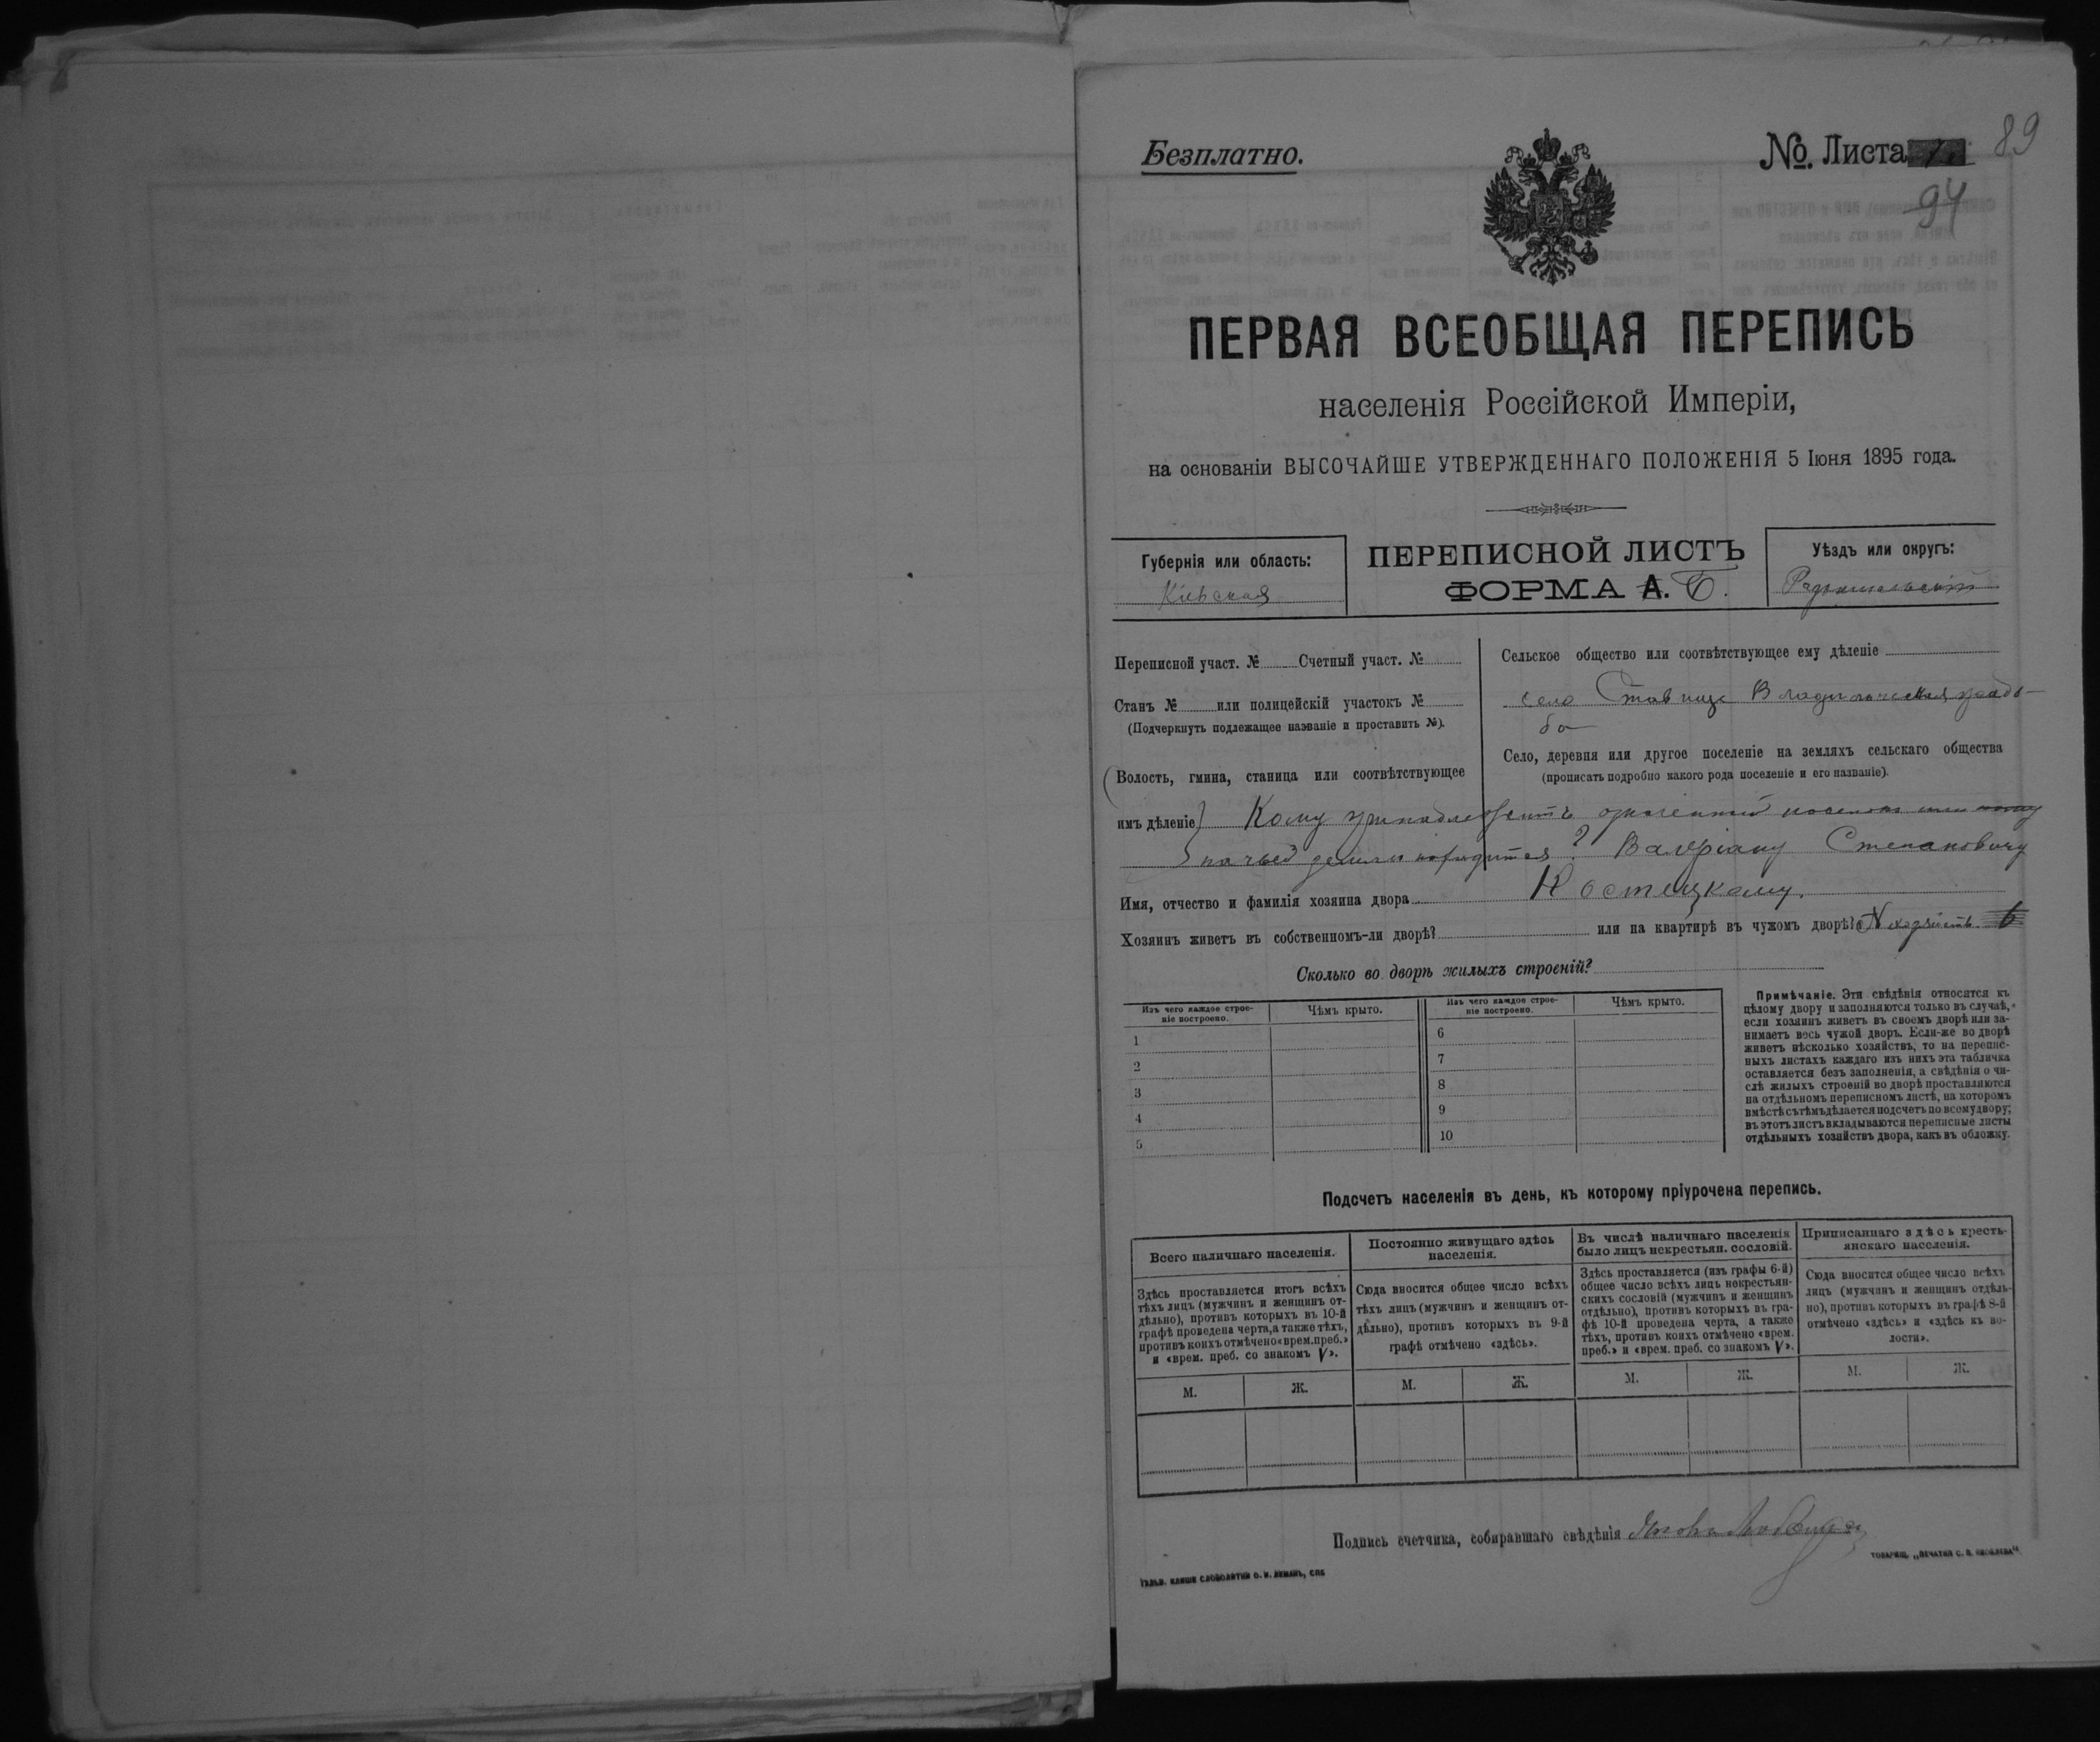 Безплатно.
№. Листа
89
94
ПЕРВАЯ ВСЕОБЩАЯ ПЕРЕПИСЬ
населенія Россійской Имперіи,
на основаніи ВЫСОЧАЙШЕ УТВЕРЖДЕННАГО ПОЛОЖЕНІЯ 5 Іюня 1895 года.
Губернія или область:
Кіевская
ПЕРЕПИСНОЙ ЛИСТЪ
ФОРМА А. Б.
Уѣздъ или округъ:
Радомысльскій
Переписной участ. № Счетный участ. №
Станъ № или полицейскій участокъ №
(Подчеркнуть подлежащее названіе и проставить №).
Волость, гмина, станица или соотвѣтствующее
Сельское общество или соотвѣтствующее ему дѣленіе
село Ставище Владельческая усадь-
ба
Село, деревня или другое поселеніе на земляхъ сельскаго общества
(прописать подробно какого рода поселеніе и его названіе).
имъ дѣленіе) Кому принадлежитъ поселокъ или
на чьей земли находится? Валеріану Степановичу
Имя, отчество и фамилія хозяина двора Костецкому.
Хозяинъ живетъ въ собственномъ-ли дворѣ? или на квартирѣ въ чужомъ дворѣ? № хозяйствъ 6
Сколько во дворѣ жилыхъ строеній?
Изъ чего каждое строе-
ніе построено.
Чѣмъ крыто.
Изъ чего каждое строе-
ніе построено.
Чѣмъ крыто.
1
2
3
4
5
6
7
8
9
10
Примѣчаніе. Эти свѣдѣнія относятся къ
цѣлому двору и заполняются только въ случаѣ,
если хозяинъ живетъ въ своемъ дворѣ или за-
нимаетъ весь чужой дворъ. Если-же во дворѣ
живетъ нѣсколько хозяйствъ, то на перепис-
ныхъ листахъ каждаго изъ нихъ эта табличка
оставляется безъ заполненія, а свѣдѣнія о чи-
слѣ жилыхъ строеній во дворѣ проставляются
на отдѣльномъ переписномъ листѣ, на которомъ
вмѣстѣ съ тѣмъ дѣлается подсчетъ по всему двору;
въ этотъ листъ вкладываются переписные листы
отдѣльныхъ хозяйствъ двора, какъ въ обложку.
Подсчетъ населенія въ день, къ которому пріурочена перепись.
Всего наличнаго населенія.
Здѣсь проставляется итогъ всѣхъ
тѣхъ лицъ (мужчинъ и женщинъ от-
дѣльно), противъ которыхъ въ 10-й
графѣ проведена черта, а также тѣхъ,
противъ коихъ отмѣчено «врем. преб.»
и «врем. преб. со знакомъ V».
М. Ж.
Постоянно живущаго здѣсь
населенія.
Сюда вносится общее число всѣхъ
тѣхъ лицъ (мужчинъ и женщинъ от-
дѣльно), противъ которыхъ въ 9-й
графѣ отмѣчено «здѣсь».
М. Ж.
Въ числѣ наличнаго населенія
было лицъ некрестьян. сословій.
Здѣсь проставляется (изъ графы 6-й)
общее число всѣхъ лицъ некрестьян-
скихъ сословій (мужчинъ и женщинъ
отдѣльно), противъ которыхъ въ гра-
фѣ 10-й проведена черта, а также
тѣхъ, противъ коихъ отмѣчено «врем.
преб.» и «врем. преб. со знакомъ V».
М. Ж.
Приписаннаго здѣсь кресть-
янскаго населенія.
Сюда вносится общее число всѣхъ
лицъ (мужчинъ и женщинъ отдѣль-
но), противъ которыхъ въ графѣ 8-й
отмѣчено «здѣсь» и «здѣсь къ во-
лости».
М. Ж.
Подпись счетчика, собиравшаго свѣдѣнія
ТОВАРИЩ. „ПЕЧАТНЯ С. П. ЯКОВЛЕВА“
ГАЛЬВ. КЛИШЕ СЛОВОЛИТНИ О. И. ЛЕМАНЪ, СПБ